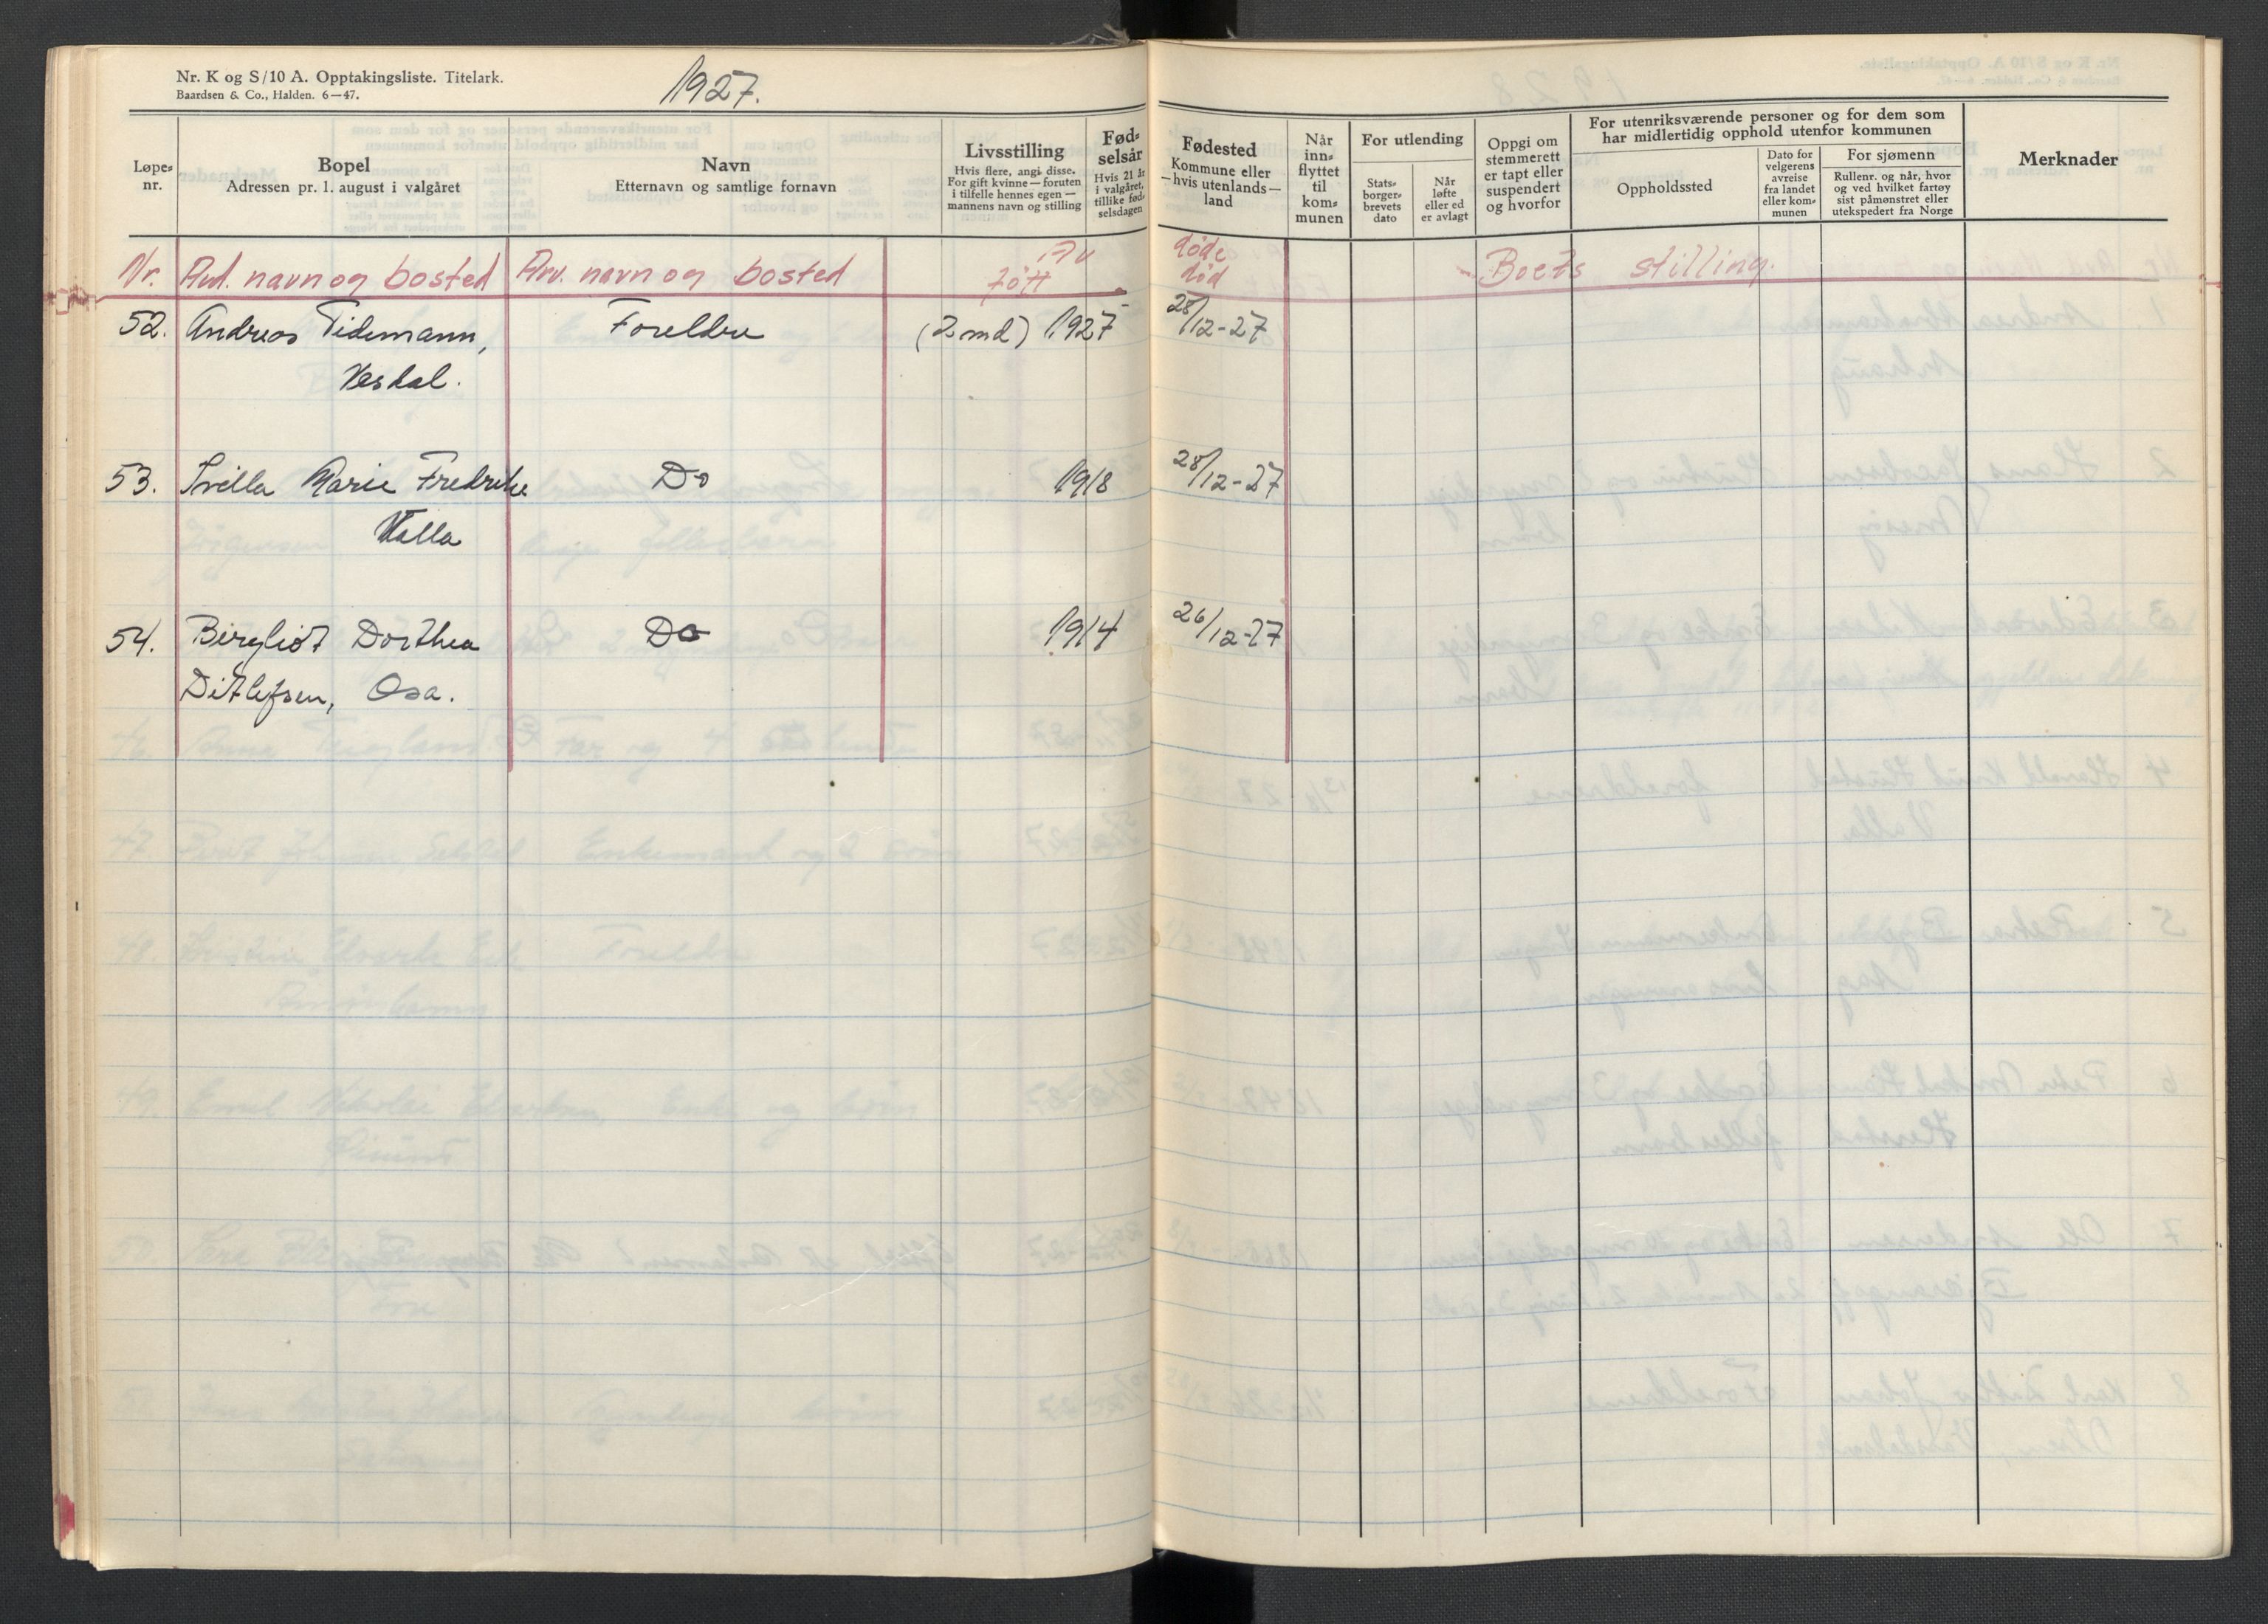 Nr. K og S/10 A. Opptakingsliste. Titelark.
Baardsen & Co., Halden. 6—47.
1927.
Løpe-
nr.
Bopel
Adressen pr. 1. august i valgåret
Navn
Etternavn og samtlige fornavn
Livsstilling
Hvis flere, angi disse.
For gift kvinne — foruten
i tilfelle hennes egen —
mannens navn og stilling
Fød-
selsår
Hvis 21 år
i valgåret,
tillike fød-
selsdagen
Fødested
Kommune eller
—hvis utenlands—
land
Når
inn-
flyttet
til
kom-
munen
For utlending
Stats-
borger-
brevets
dato
Når
løfte
eller ed
er avlagt
Oppgi om
stemmerett
er tapt eller
suspendert
og hvorfor
For utenriksværende personer og for dem som
har midlertidig opphold utenfor kommunen
Oppholdssted
Dato for
velgerens
avreise
fra landet
eller kom-
munen
For sjømenn
Rullenr. og når, hvor
og ved hvilket fartøy
sist påmønstret eller
utekspedert fra Norge
Merknader
Nr. Avd. navn og bosted Arv. navn og bosted født død Boets stilling.
52. Andreas Tidemann, Foreldre (2 md) 1927 28/12-27
53. Marie Fredrikke Do 1918 28/12-27
Valla
54. Bergliot Dorthea Do 1914 26/12-27
Ditlefsen, Osa.